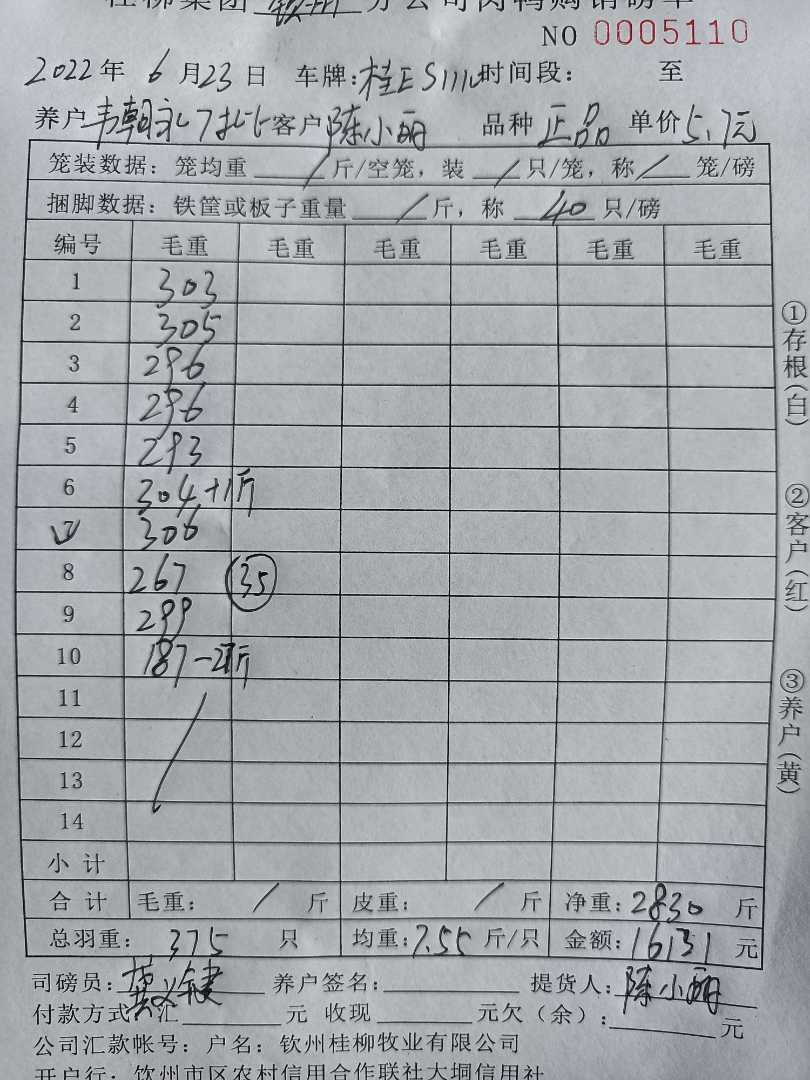 桂柳集团 钦州 分公司肉鸭购销磅单
NO 0005110
2022年 6月23日 车牌:桂ES111 时间段: 至
养户 韦朝礼 客户 陈小丽 品种 正品 单价 5.7元
笼装数据: 笼均重 / 斤/空笼, 装 / 只/笼, 称 / 笼/磅
捆脚数据: 铁筐或板子重量 / 斤, 称 40 只/磅
编号 毛重 毛重 毛重 毛重 毛重 毛重
1 303
2 305
3 296
4 296
5 293
6 304+1斤
7 306
8 267 35
9 299
10 187-27斤
11
12
13
14
小计
合计 毛重: / 斤 皮重: / 斤 净重: 2830 斤
总羽重: 375 只 均重: 7.55 斤/只 金额: 16131 元
司磅员: 养户签名: 提货人: 陈小丽
付款方式: 汇 元 收现 元欠(余): 元
公司汇款帐号: 户名: 钦州桂柳牧业有限公司
开户行: 钦州市区农村信用合作联社大垌信用社
①存根(白) ②客户(红) ③养户(黄)